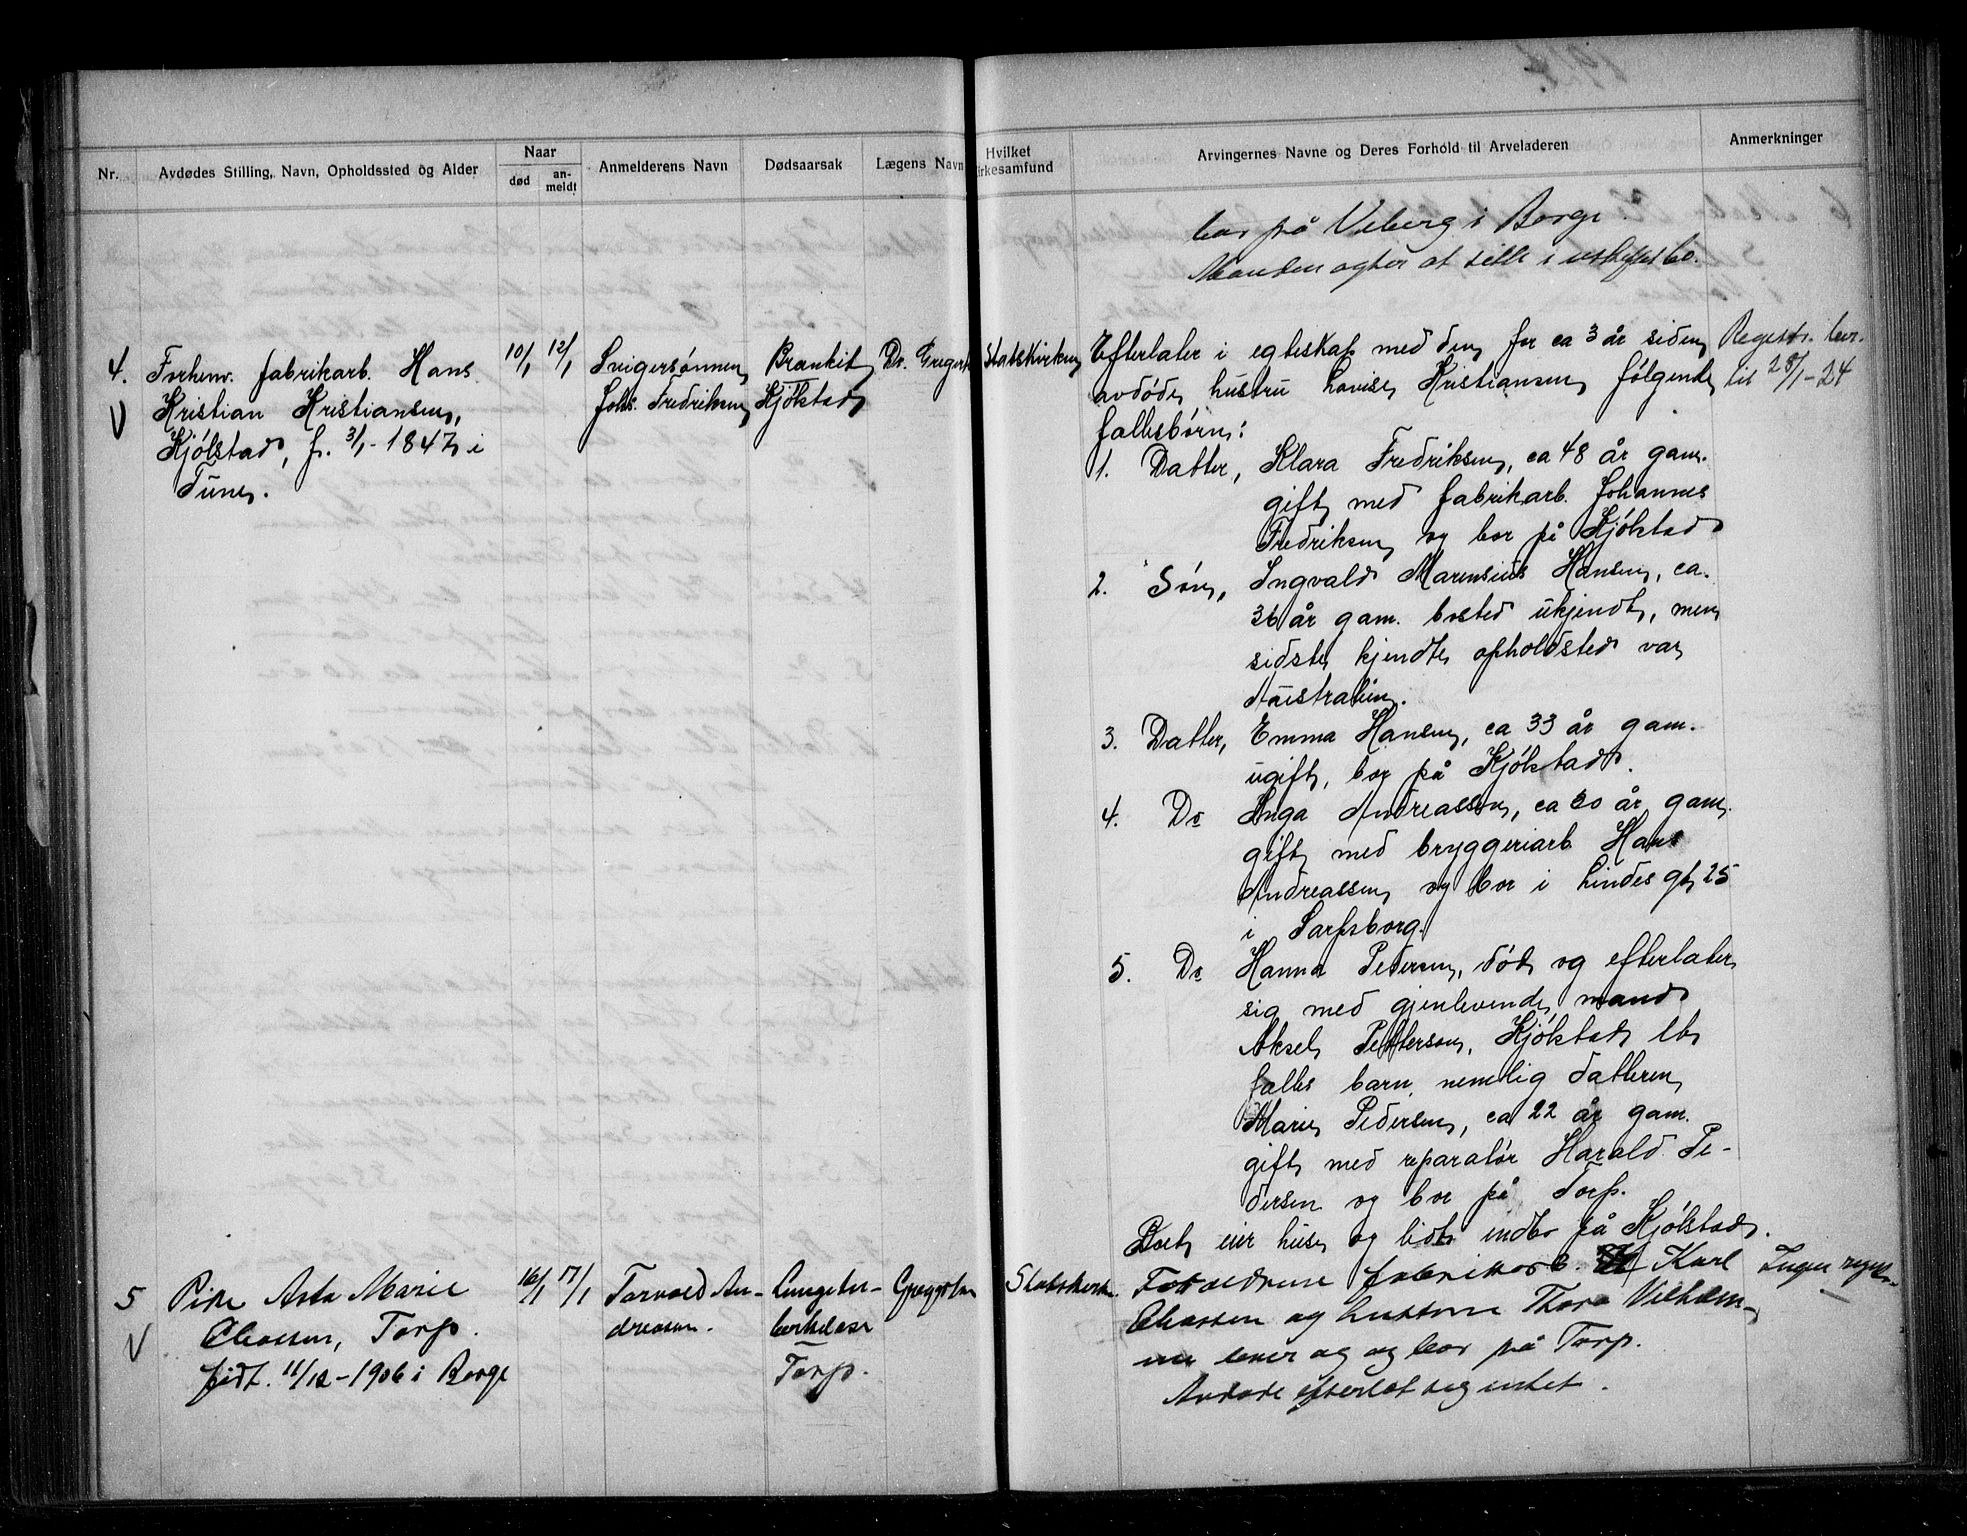 1924.
Nr.
Avdødes Stilling, Navn, Opholdssted og Alder
Naar
død
an-
meldt
Anmelderens Navn
Dødsaarsak
Lægens Navn
Hvilket
irkesamfund
Arvingernes Navne og Deres Forhold til Arveladeren
Anmerkninger
bor på Viberg i Borge.
Manden agter at sitte i uskiftet bo.
4. Forhenv. fabrikarb. Hans
Kristian Kristiansen,
Kjølstad, f. 3/1-1847 i
Tune.
10/1 12/1
Svigersønnen
Johs. Fredriksen
Bronkit
Kjølstad
Dr. Gregert
Statskirken
Efterlater i egteskap med den for ca 3 år siden
avdøde hustru Lovise Kristiansen følgende
fallesbørn:
1. Datter, Klara Fredriksen, ca 48 år gam.
gift med fabrikarb. Johannes
Fredriksen og bor på Kjølstad
2. Søn, Ingvald Marensius Hansen, ca.
36 år gam. bosted ukjendt, men
sidste kjendte opholdsted var
Australien.
3. Datter, Emma Hansen, ca 33 år gam.
ugift, bor på Kjølstad.
4. Do Inga Andreassen, ca 20 år gam.
gift med bryggeriarb Hans
Andreassen og bor i Lindes gt 25
i Sarpsborg.
5. Do Hanna Pedersen, død og efterlater
sig med gjenlevende mand
Aksel Pettersen, Kjølstad et
falles barn nemlig datteren
Marie Pedersen, ca 22 år gam.
gift med reparatør Harald Pe-
dersen og bor på Torp.
Boet eier huse og lidt indbo på Kjølstad.
Registr. lev.
til 28/1-24
5 Pike Asta Marie
Olassen, Torp.
født. 11/12-1906 i Borge
16/1 17/1
Torvald An-
dreassen.
Lungetu-
berkulose
Torp.
Statskirke
Forældrene fabrikarb. Karl
Olassen og hustru Thora Vilhelm-
ine lever og og bor på Torp.
Avdøde efterlot sig intet.
Ingen regis-